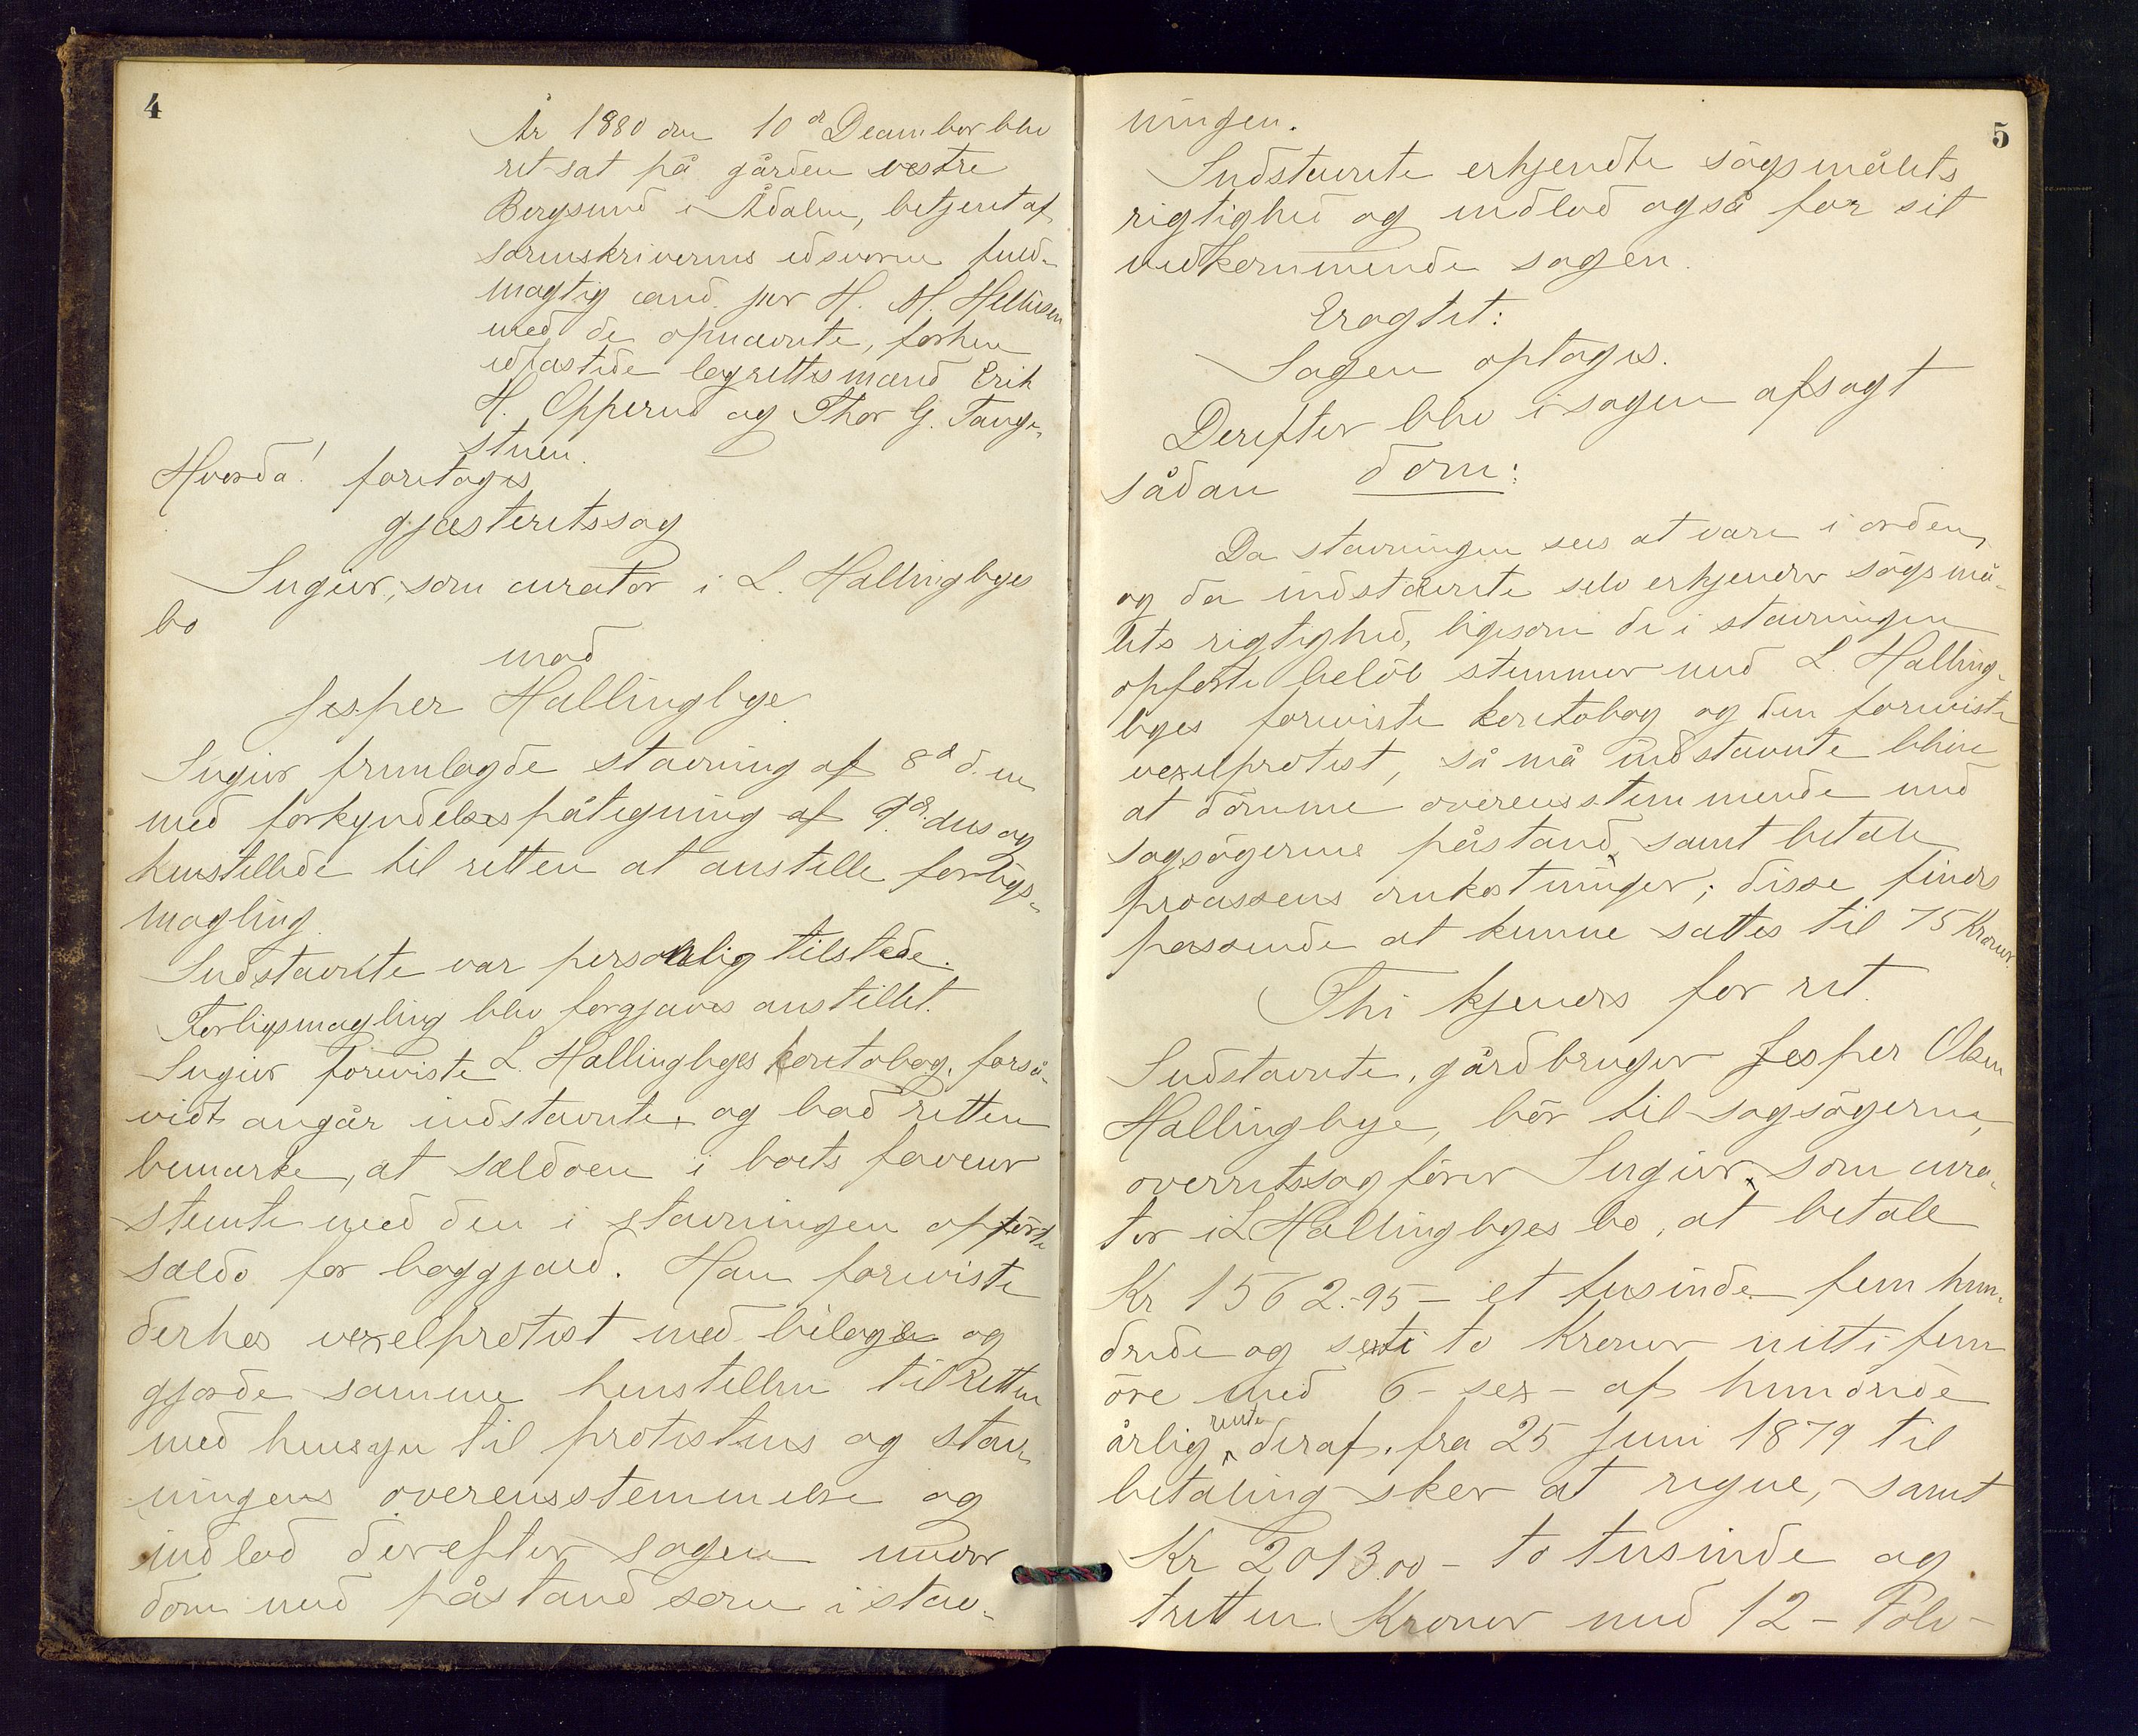 4
År 1880 den 10d December blev
ret sat på gården vestre
Bergsund i Ådalen, betjent af
sorenskriverens edsvorne fuld-
mægtig cand. jur H. M. Hellisen
med de opnævnte, forhen
edfæstede lagrettesmænd Erik
H. Opperud og Thor G. Tange-
stuen.
Hvorda! foretoges
gjæsteretssag
Sugier, som curator i L. Hallingbyes
bo
mod
Jesper Hallingbye
Sugier fremlagde stævning af 8d d. m
med forkyndelsespåtegning af 9d. dns og
henstillede til retten at anstille forligs-
mægling.
Indstævnte var personlig tilstede.
Forligsmægling blev forgjæves anstillet.
Sugier foreviste L. Hallingbyes kontobog, forså-
vidt angår indstævnte, og bad retten
bemærke, at saldoen i boets faveur
stemte med den i stævningen opførte
saldo for boggjæld. Han foreviste
derhos vexelprotest med bilage og
gjorde samme henstillen til Retten
med hensyn til protestens og stæv-
ningens overensstemmelse og
indlod derefter sagen under
dom med påstand som i stæv-
5
ningen.
Indstævnte erkjendte søgsmålets
rigtighed og indlod også for sit
vedkommende sagen.
Eragtet:
Sagen optages.
Derefter blev i sagen afsagt
sådan dom:
Da stævningen sees at være i orden,
og da indstævnte selv erkjender søgsmå-
lets rigtighed, ligesom de i stævningen
opførte beløb stemmer med L. Halling-
byes foreviste kontobog og den foreviste
vexelprotest, så må indstævnte blive
at dømme overensstemmende med
sagsøgerens påstand, samt betale
processens omkostninger; disse findes
passende at kunne sættes til 75 Kroner.
Thi kjendes for ret.
Indstævnte, gårdbruger Jesper Olsen
Hallingbye, bør til sagsøgeren,
overretssagfører Sugier, som cura-
tor i L Hallingbyes bo, at betale
Kr 1562.95 – et tusinde fem hun-
drede og sexti to Kroner nitti fem
øre med 6 – sex – af hundrede
årlig rente deraf, fra 25 Juni 1879 til
betaling sker at regne, samt
Kr 2013.00 – to tusinde og
tretten Kroner med 12 – Tolv –